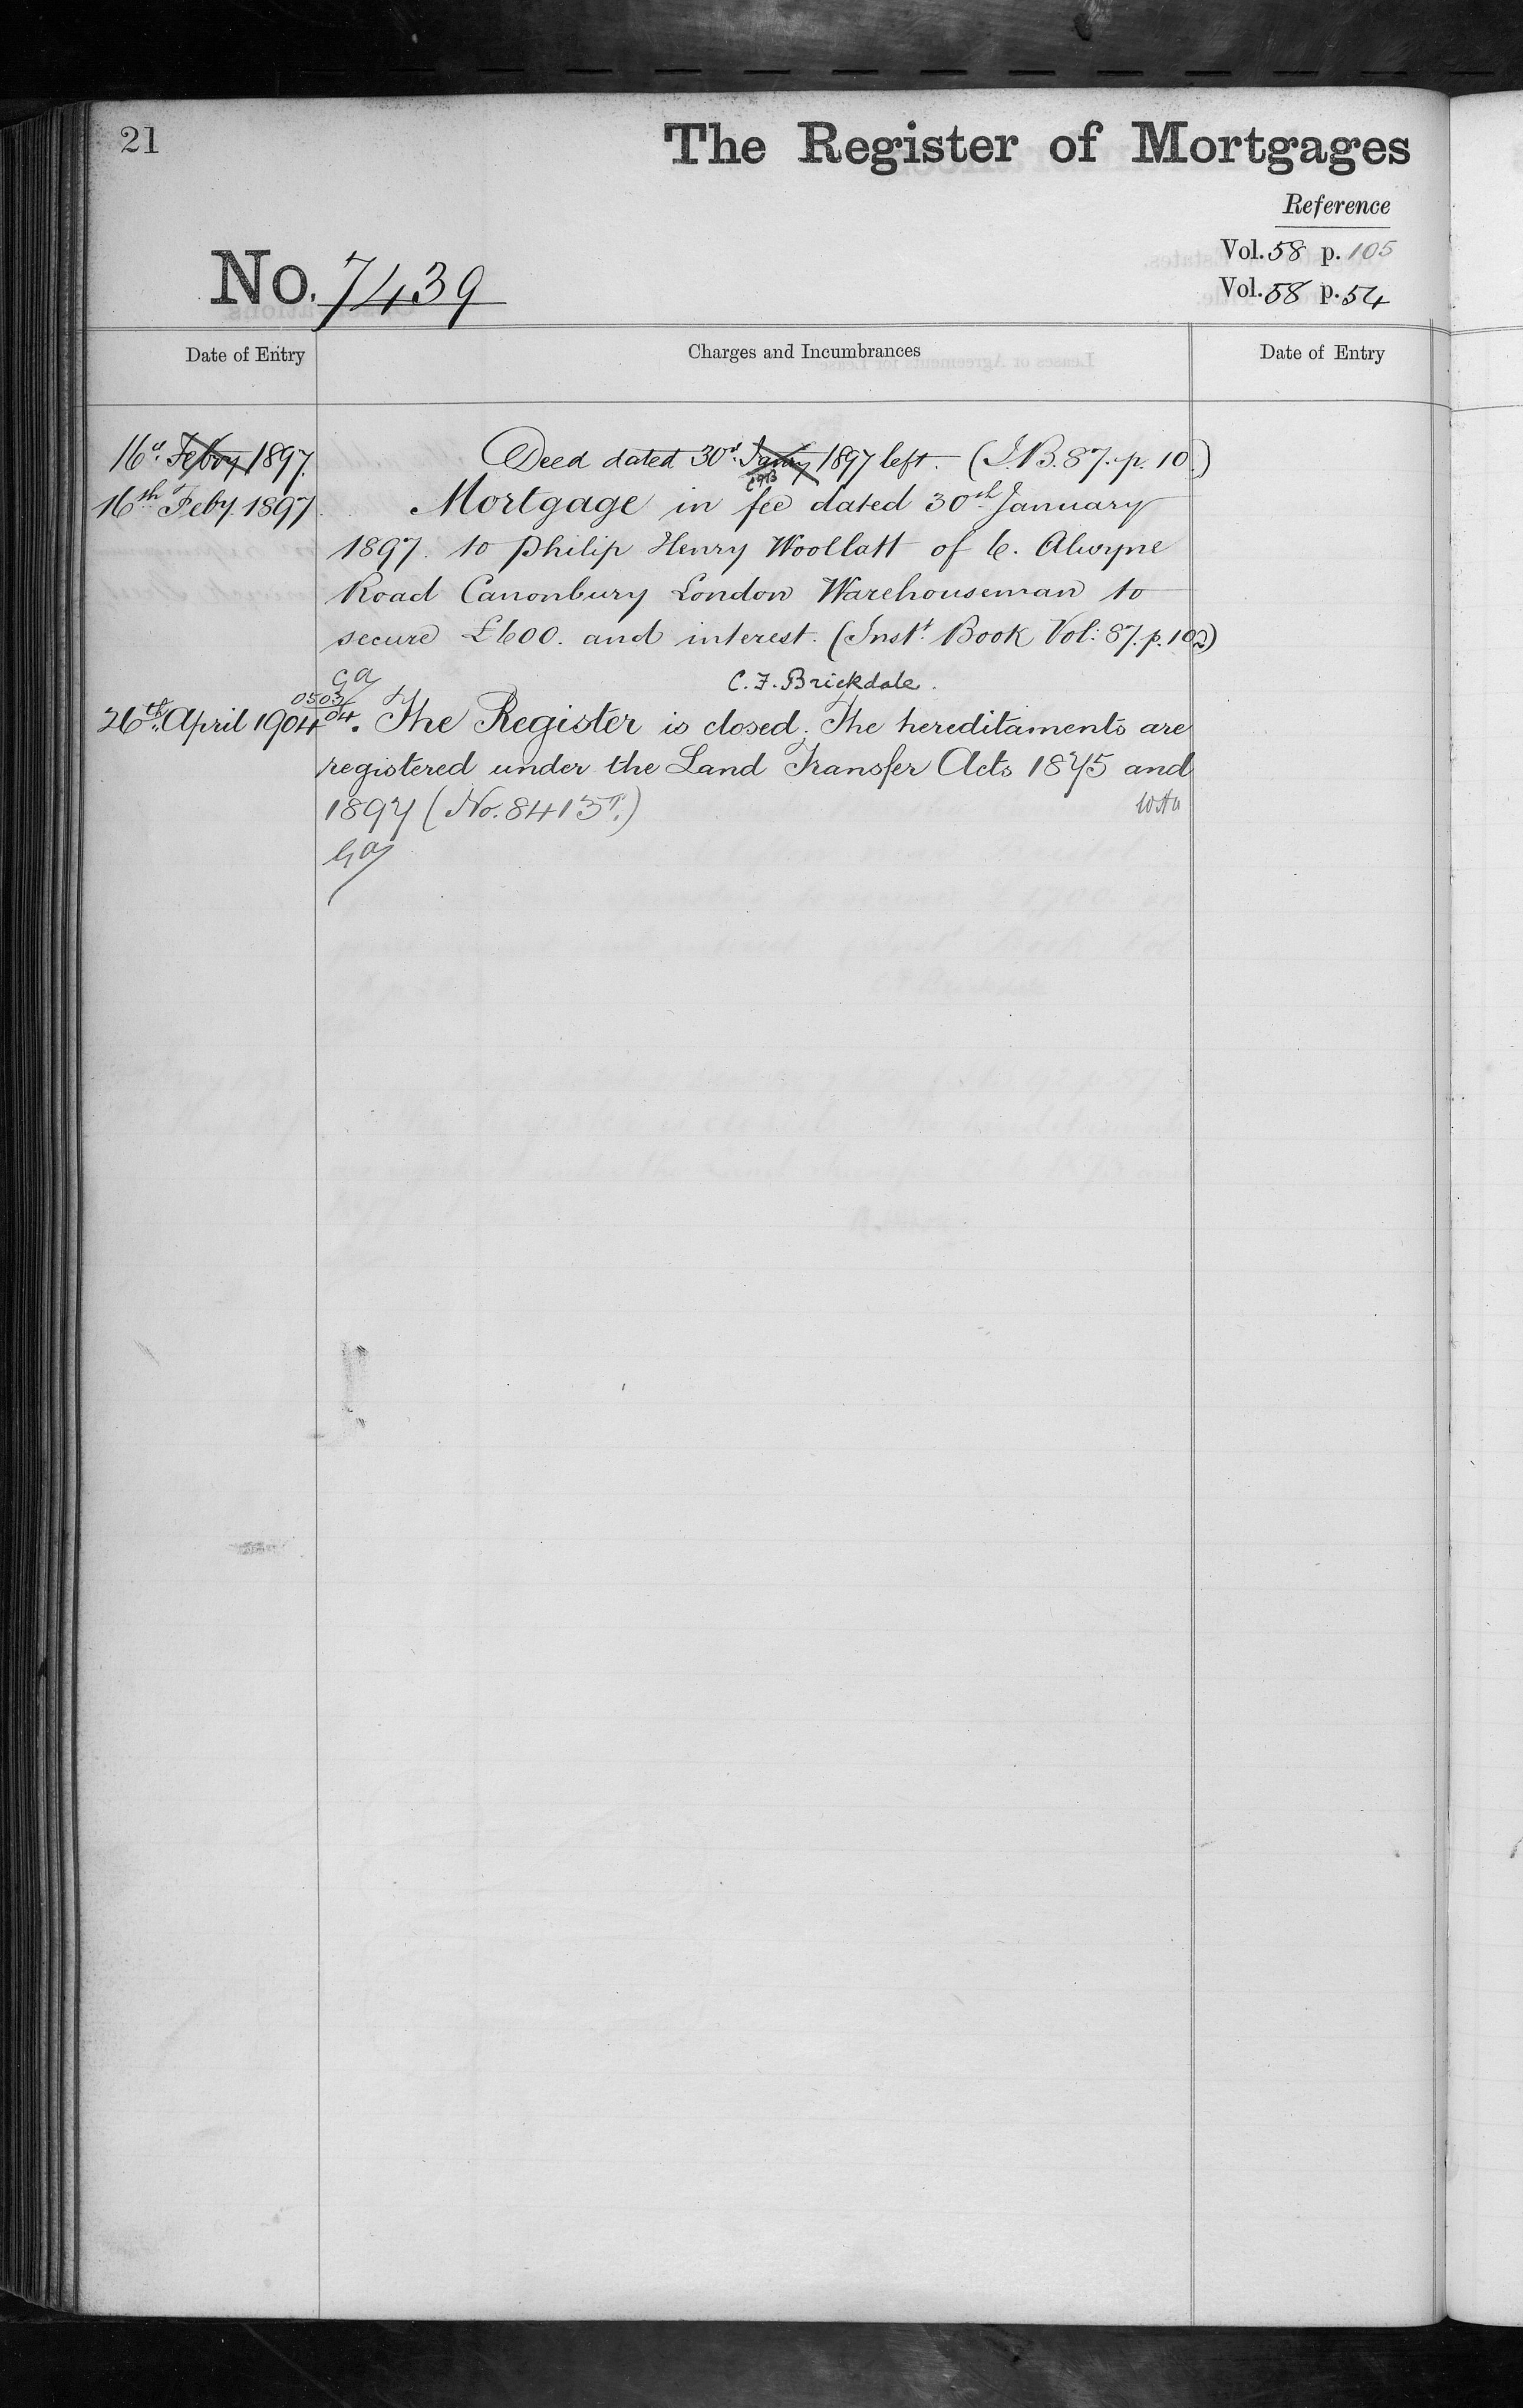 21
The Register of Mortgages
Reference
Vol. 58 p. 105
No. 7439
Vol. 58 p. 54
Date of Entry
Charges and Incumbrances
Date of Entry
16th Febry 1897. Deed dated 30th Janry 1897 left. (I.B. 87. p. 10.)
CFB
16th Feby 1897. Mortgage in fee dated 30th January
1897. to Philip Henry Woollatt of 6. Alwyne
Road Canonbury London Warehouseman to
secure £600. and interest. (Instt Book Vol: 87. p. 102)
Ga C. F. Brickdale.
0503/04
26th April 1904. The Register is closed; The hereditaments are
registered under the Land Transfer Acts 1875 and
1897 (No. 8413T.)
Ga